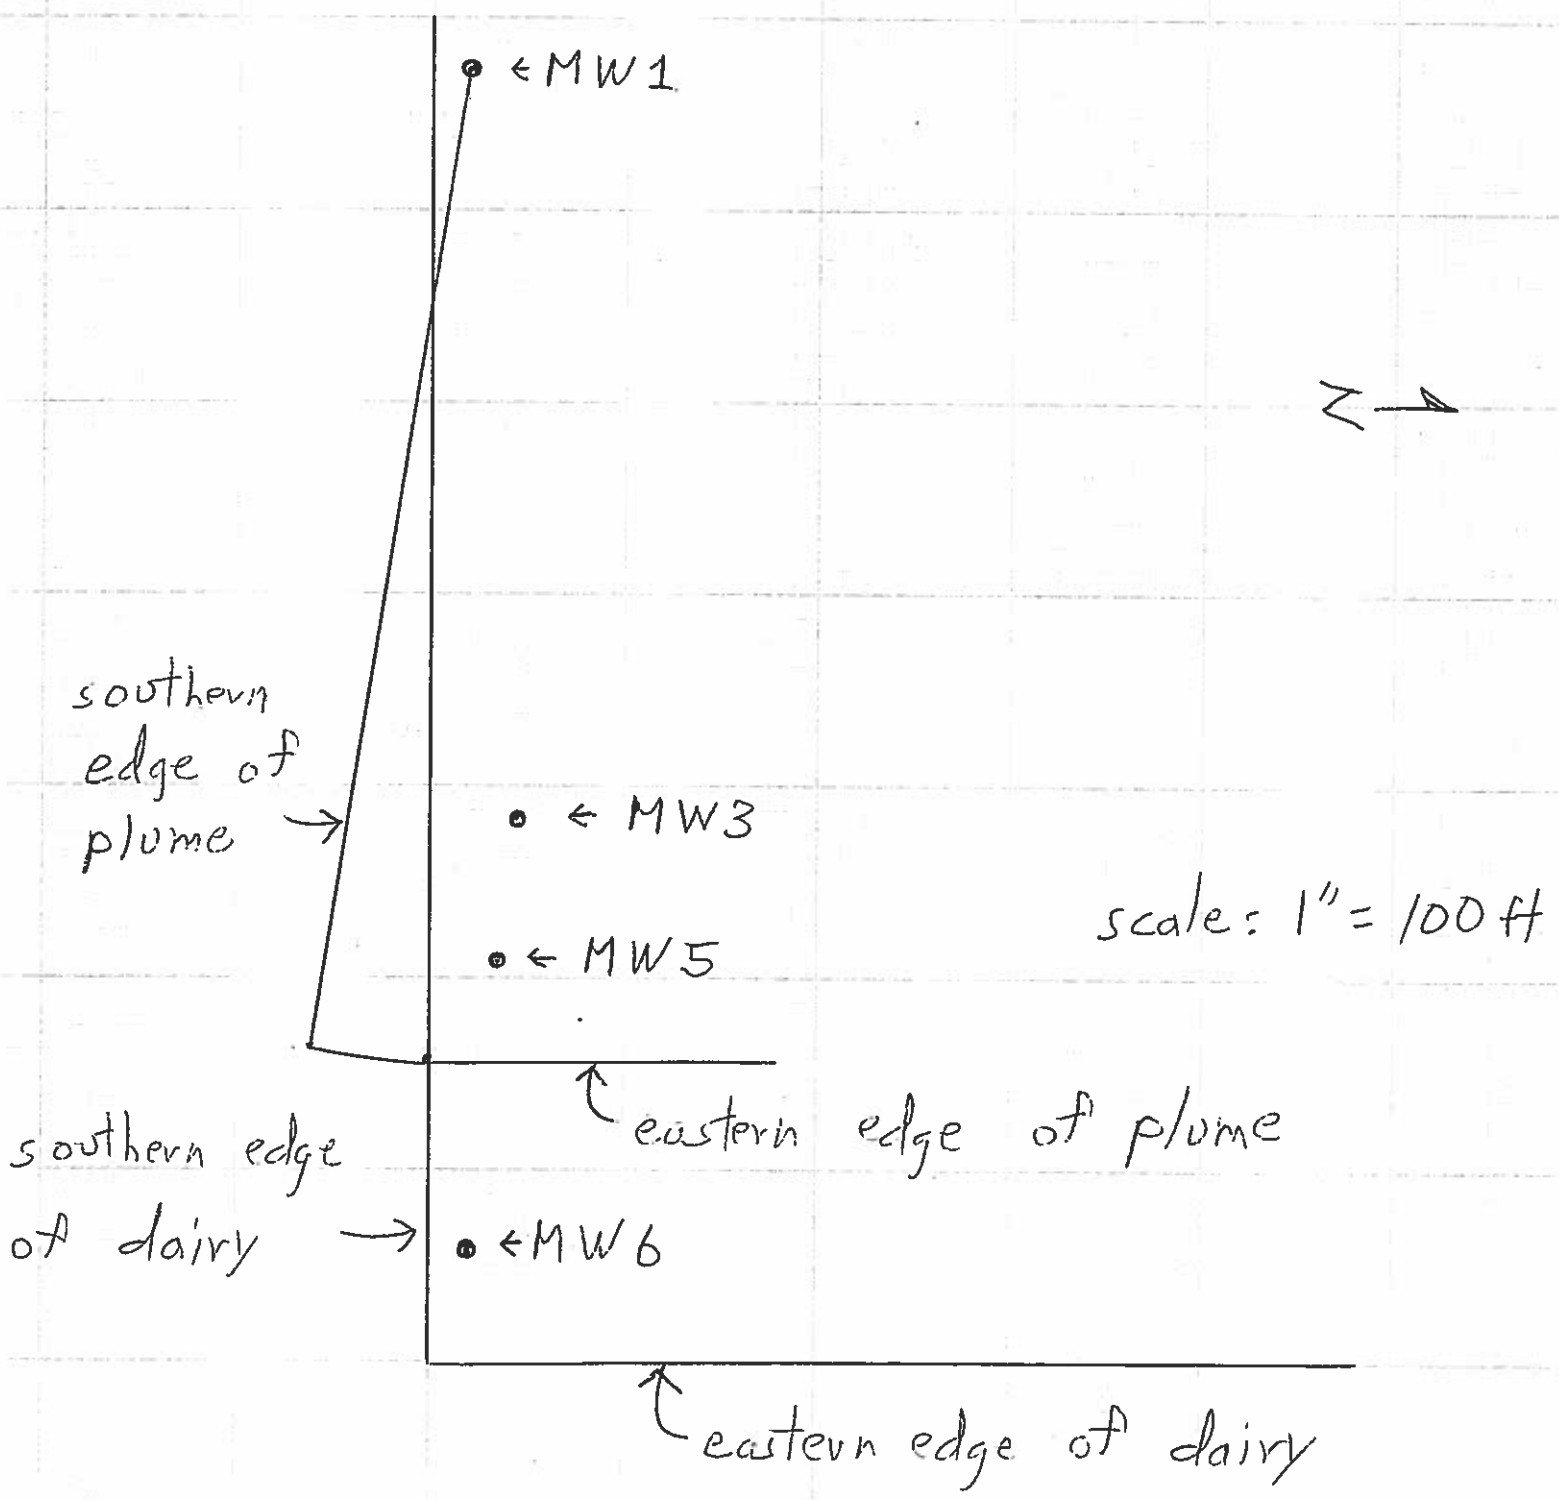 ← MW1
N
southern
edge of
plume →
← MW3
scale: 1" = 100 ft
← MW5
eastern edge of plume
southern edge
of dairy →
← MW6
eastern edge of dairy